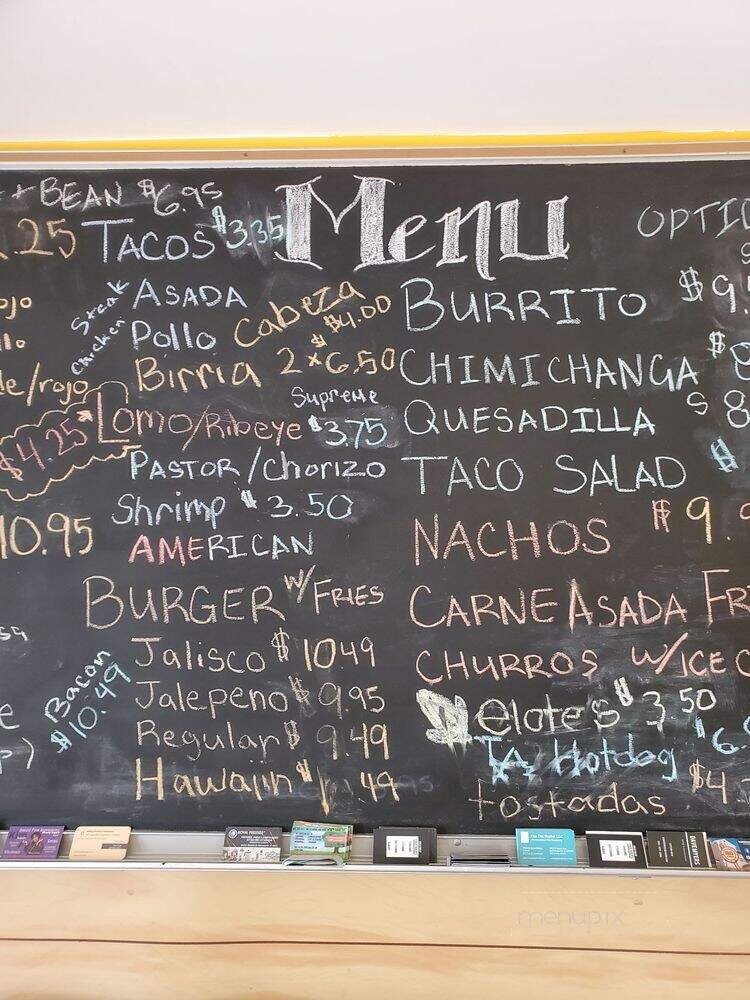 + BEAN $6.95
Menu
.25 TACOS $3.35
OPTIO
ojo Steak ASADA
BURRITO $9.
llo chicken Pollo Cabeza $4.00
de/rojo Birria 2 x $6.50
CHIMICHANGA $8
Supreme
$4.25 Lomo/Ribeye $3.75
QUESADILLA $8
PASTOR/Chorizo
TACO SALAD $
Shrimp $3.50
10.95 AMERICAN
NACHOS $9.9
BURGER W/FRIES
CARNE ASADA FR
Jalisco $10.49
CHURROS W/ICE C
Bacon $10.49
Jalepeno $9.95
Elote's $3.50
Regular $9.49
Hotdog $6.
Hawaiin $1 .49
tostadas $4.
ROYAL PRESTIGE
menupix